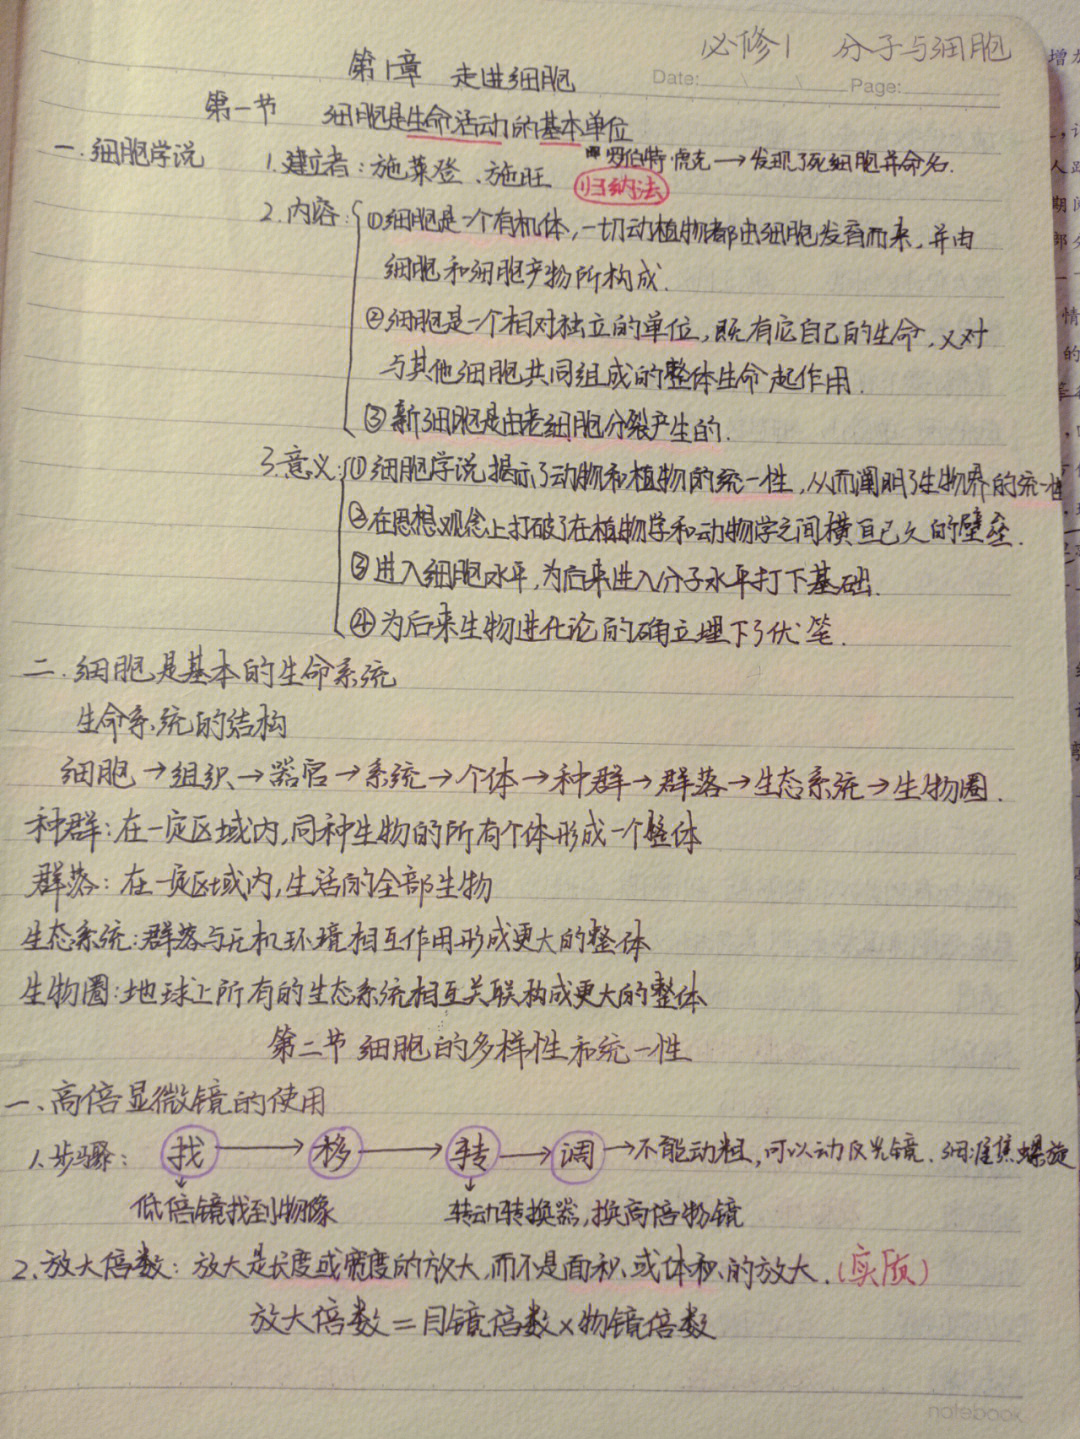 必修1 分子与细胞
Date: Page:
第1章 走进细胞
第一节 细胞是生命活动的基本单位
一.细胞学说 1.建立者：施莱登、施旺 罗伯特虎克→发现了死细胞并命名.
归纳法
2.内容：①细胞是一个有机体,一切动植物都由细胞发育而来,并由
细胞和细胞产物所构成.
②细胞是一个相对独立的单位,既有它自己的生命,又对
与其他细胞共同组成的整体生命起作用.
③新细胞是由老细胞分裂产生的.
3.意义：①细胞学说揭示了动物和植物的统一性,从而阐明了生物界的统一性
②在思想观念上打破了在植物学和动物学之间横亘已久的壁垒.
③进入细胞水平,为后来进入分子水平打下基础.
④为后来生物进化论的确立埋下了伏笔.
二.细胞是基本的生命系统
生命系统的结构
细胞→组织→器官→系统→个体→种群→群落→生态系统→生物圈.
种群：在一定区域内,同种生物的所有个体形成一个整体
群落：在一定区域内,生活的全部生物
生态系统：群落与无机环境相互作用形成更大的整体
生物圈：地球上所有的生态系统相互关联构成更大的整体
第二节 细胞的多样性和统一性
一、高倍显微镜的使用
1.步骤：找→移→转→调→不能动粗,可以动反光镜、细准焦螺旋
低倍镜找到物像 转动转换器,换高倍物镜
2.放大倍数：放大是长度或宽度的放大,而不是面积或体积的放大.(实质)
放大倍数=目镜倍数×物镜倍数
notebook